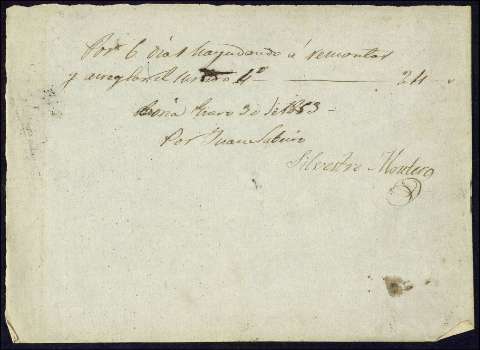 Por 6 dias hayudando á remontar
y arreglar el 4º 24
Enero 30 de 1853
Por Juan
Silvestre Montero